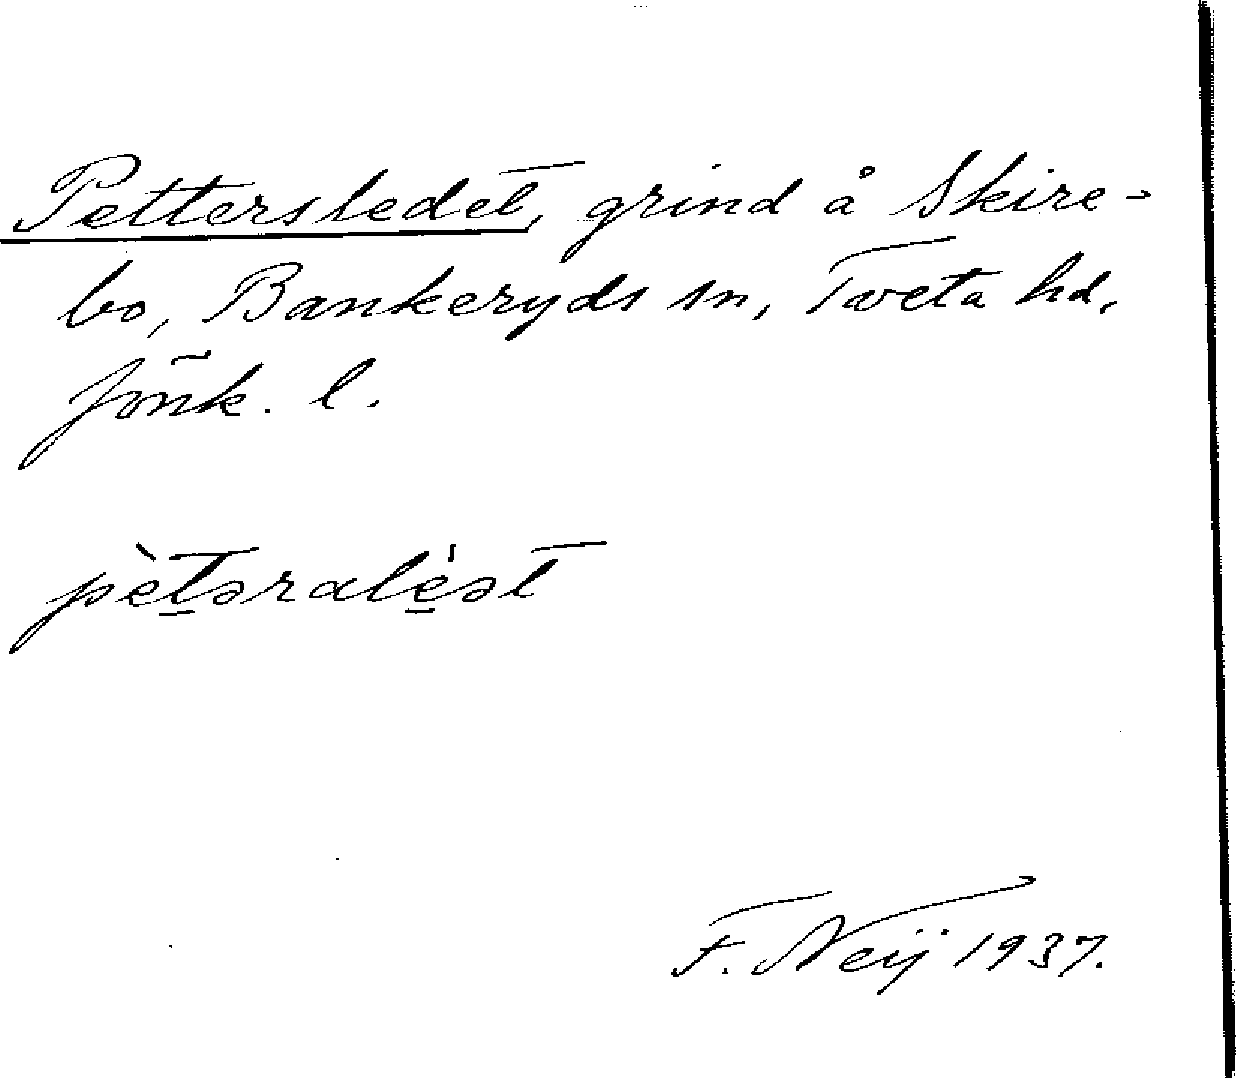 Pettersledet, grind å Skire-
bo, Bankeryds sn, Tveta hd,
Jönk. l.
pètəralèət
F. Neij 1937.